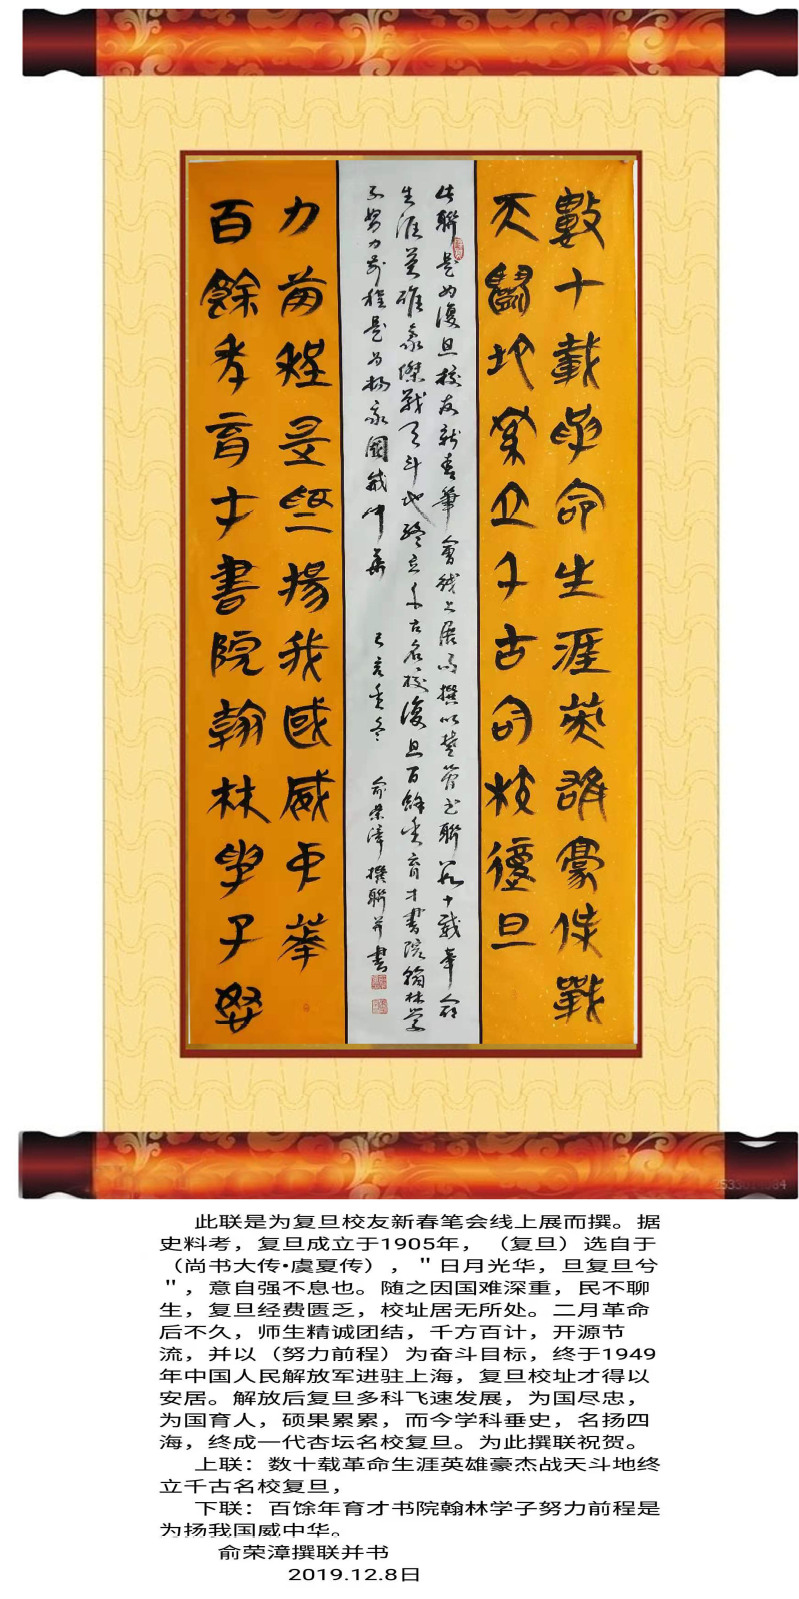 數十載革命生涯英雄豪傑戰
天鬭地終立千古名校復旦
此聯是为復旦校友新春筆會线上展而撰以楚簡书聯數十載革命
生涯英雄豪傑战天斗地終立千古名校復旦百餘年育才書院翰林学
子努力前程是为揚我國威中華 己亥年冬 俞榮漳撰聯并書
百餘年育才書院翰林學子努
力前程是為揚我國威中華
此联是为复旦校友新春笔会线上展而撰。据
史料考，复旦成立于1905年，（复旦）选自于
（尚书大传•虞夏传），＂日月光华，旦复旦兮
＂，意自强不息也。随之因国难深重，民不聊
生，复旦经费匮乏，校址居无所处。二月革命
后不久，师生精诚团结，千方百计，开源节
流，并以（努力前程）为奋斗目标，终于1949
年中国人民解放军进驻上海，复旦校址才得以
安居。解放后复旦多科飞速发展，为国尽忠，
为国育人，硕果累累，而今学科垂史，名扬四
海，终成一代杏坛名校复旦。为此撰联祝贺。
上联：数十载革命生涯英雄豪杰战天斗地终
立千古名校复旦，
下联：百馀年育才书院翰林学子努力前程是
为扬我国威中华。
俞荣漳撰联并书
2019.12.8日